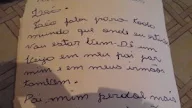 Irai.
Irão falar para todo
mundo que onde eu estiver
vou estar bem. Dê um
beijo em meu pai por
mim e em meus irmãos
também.
Pai, mim perdoa, não